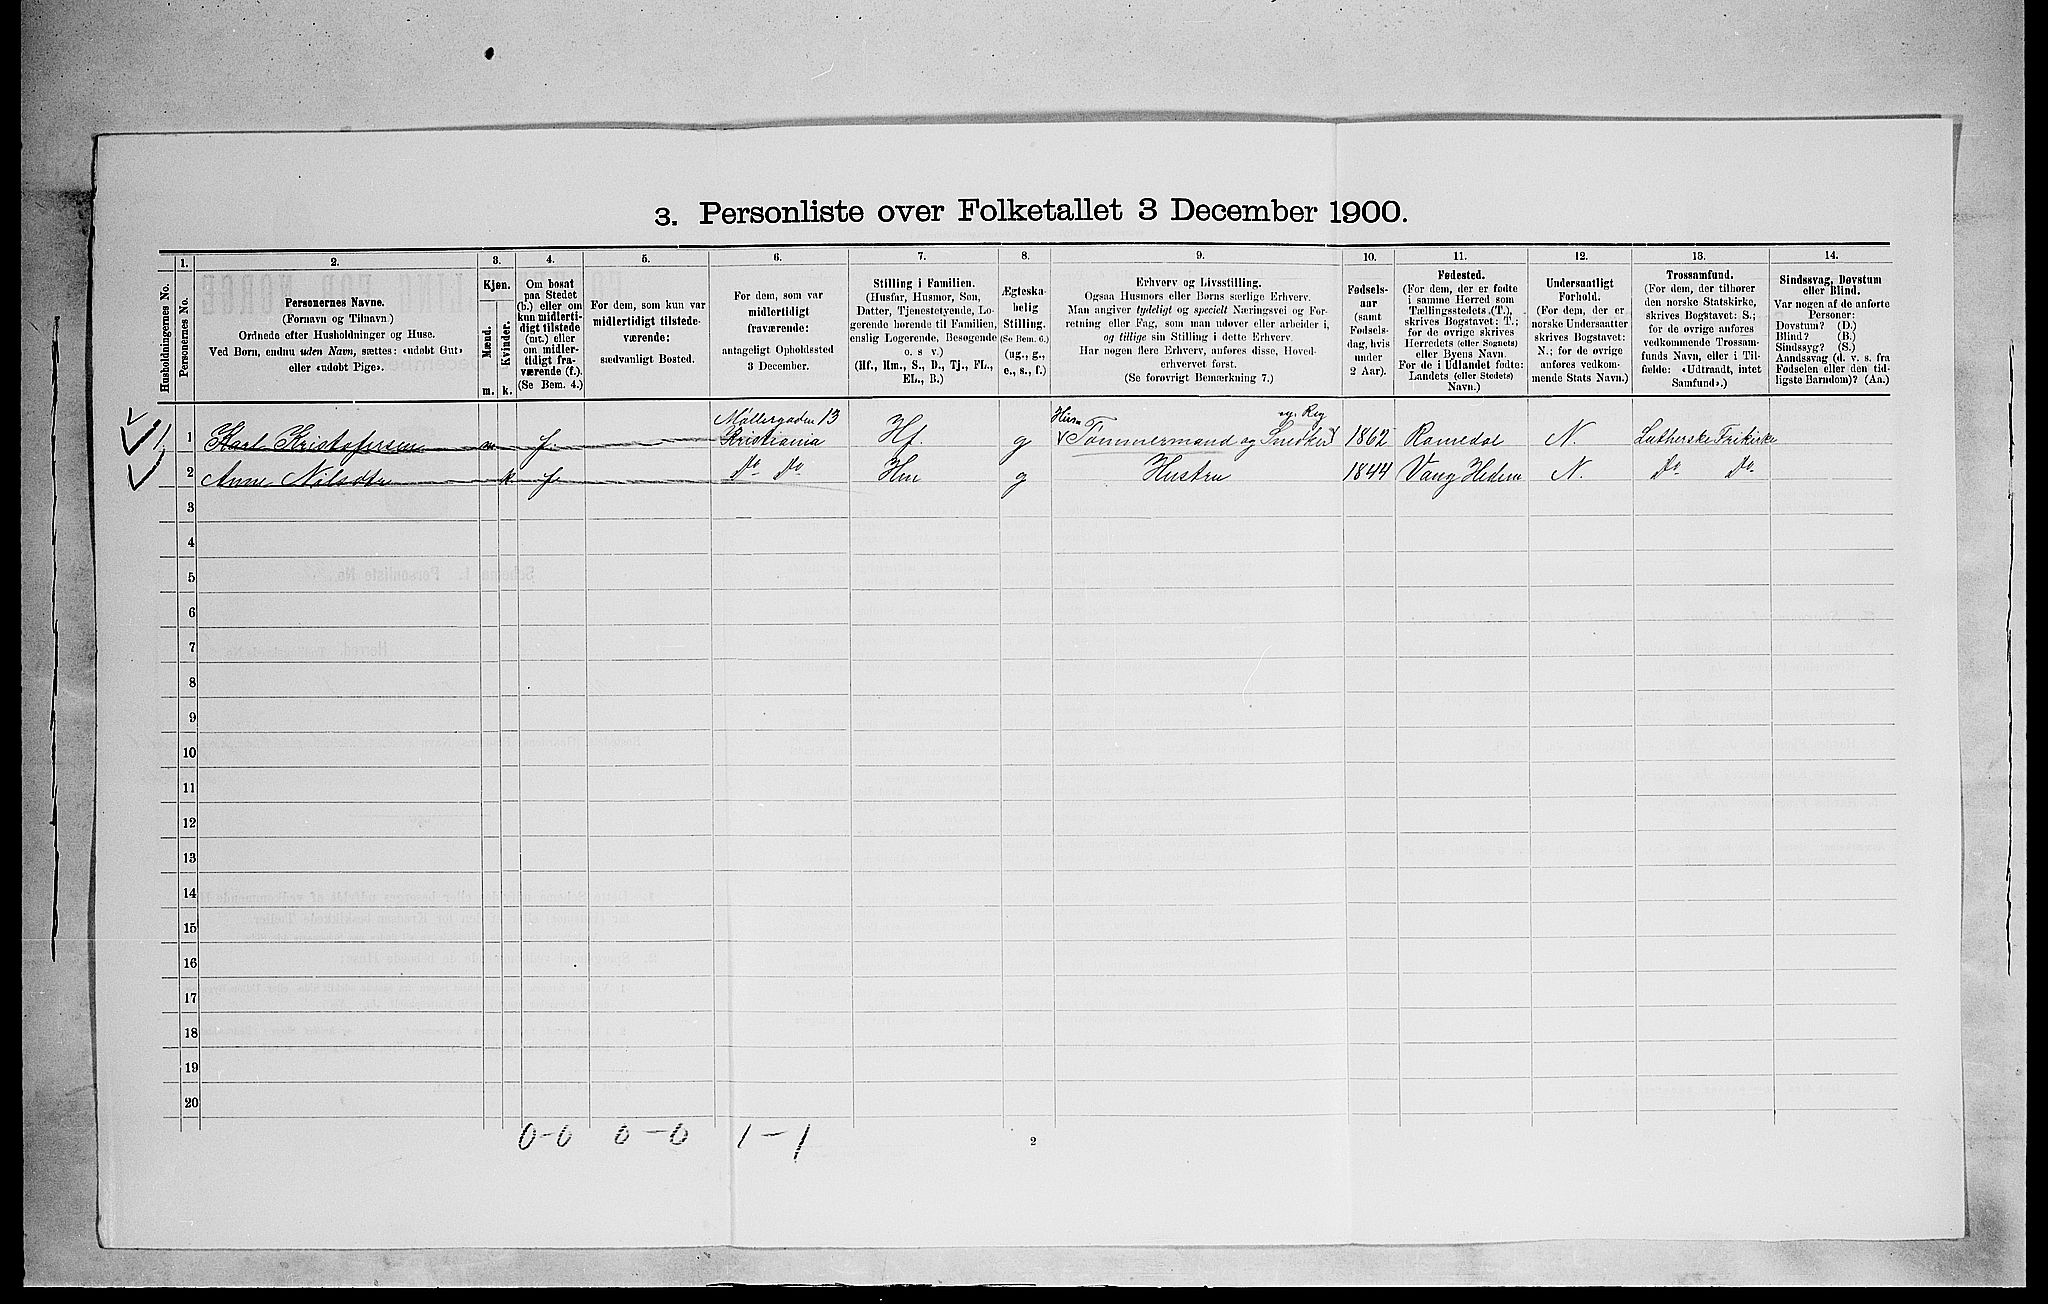 3. Personliste over Folketallet 3 December 1900.
Husholdningernes No.
1.
Personernes No.
2.
Personernes Navne.
(Fornavn og Tilnavn.)
Ordnede efter Husholdninger og Huse.
Ved Børn, endnu uden Navn, sættes: «udøbt Gut»
eller «udøbt Pige».
3.
Kjøn.
Mænd.
Kvinder.
m. k.
4.
Om bosat
paa Stedet
(b.) eller om
kun midlerti-
digt tilstede
(mt.) eller
om midler-
tidigt fra-
værende (f.).
(Se Bem. 4.)
5.
For dem, som kun var
midlertidigt tilstede-
værende:
sædvanligt Bosted.
6.
For dem, som var
midlertidigt
fraværende:
antageligt Opholdssted
3 December.
7.
Stilling i Familien.
(Husfar, Husmor, Søn,
Datter, Tjenestetyende, Lo-
gerende hørende til Familien,
enslig Logerende, Besøgende
o. s. v.)
(Hf., Hm., S., D., Tj., FL.,
EL., B.)
8.
Ægteska-
belig
Stilling.
(Se Bem. 6.)
(ug., g.,
e., s., f.)
9.
Erhverv og Livsstilling.
Ogsaa Husmors eller Børns særlige Erhverv.
Man angiver tydeligt og specielt Næringsvei og For-
retning eller Fag, som man udøver eller arbeider i,
og tillige sin Stilling i dette Erhverv.
Har nogen flere Erhverv, anføres disse, Hoved-
erhvervet først.
(Se forøvrigt Bemærkning 7.)
10.
Fødsels-
aar
(samt
Fødsels-
dag, hvis
under
2 Aar).
11.
Fødested.
(For dem, der er fødte
i samme Herred som
Tællingsstedets (T.),
skrives Bogstavet: T.;
for de øvrige skrives
Herredets (eller Sognets)
eller Byens Navn.
For de i Udlandet fødte:
Landets (eller Stedets)
Navn.)
12.
Undersaatligt
Forhold.
(For dem, der er
norske Undersaatter
skrives Bogstavet:
N.; for de øvrige
anføres vedkom-
mende Stats Navn.)
13.
Trossamfund.
(For dem, der tilhører
den norske Statskirke,
skrives Bogstavet: S.;
for de øvrige anføres
vedkommende Trossam-
funds Navn, eller i Til-
fælde: «Udtraadt, intet
Samfund».)
14.
Sindssvag, Døvstum
eller Blind.
Var nogen af de anførte
Personer:
Døvstum? (D.)
Blind? (B.)
Sindssyg? (S.)
Aandssvag (d. v. s. fra
Fødselen eller den tid-
ligste Barndom)? (Aa.)
Møllergaden 13
1 1 Karl Kristofersen m f. Kristiania Hf. g Tømmermand og Snedker 1862 Romedal N. Lutherske Frikirke
2 Anne Nilsdtr k f. Do Do Hm g Hustru 1844 Vang Hedem N. Do Do
3
4
5
6
7
8
9
10
11
12
13
14
15
16
17
18
19
20
0-0 0-0 1-1
2